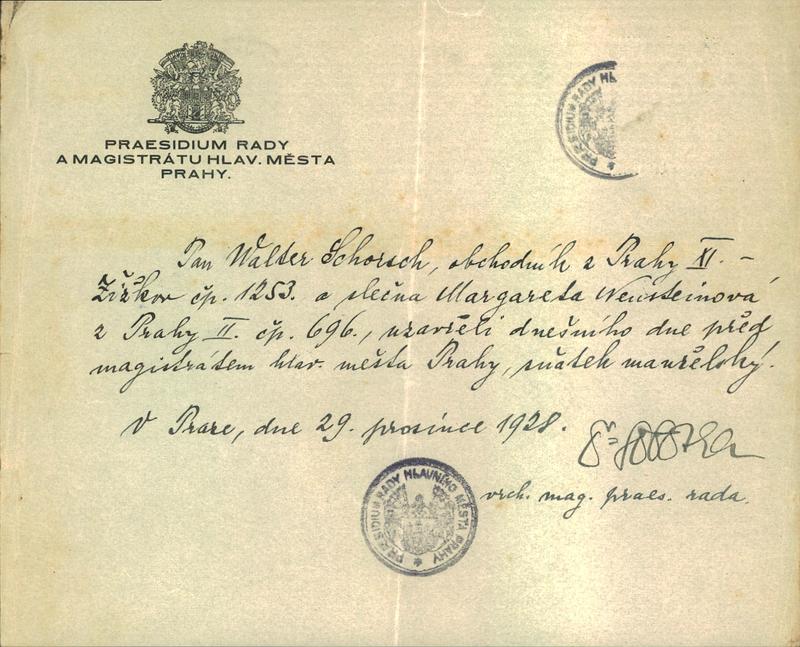 PRAESIDIUM RADY
A MAGISTRÁTU HLAV. MĚSTA
PRAHY.
PRÆSIDIUM RADY HL
Pan Walter Schorsch, obchodník z Prahy XI. –
Žižkov čp. 1253. a slečna Margareta Neusteinová
z Prahy II. čp. 696., uzavřeli dnešního dne před
magistrátem hlav. města Prahy, sňatek manželský.
V Praze, dne 29. prosince 1928.
vrch. mag. praes. rada.
PRÆSIDIUM RADY HLAVNÍHO MĚSTA PRAHY